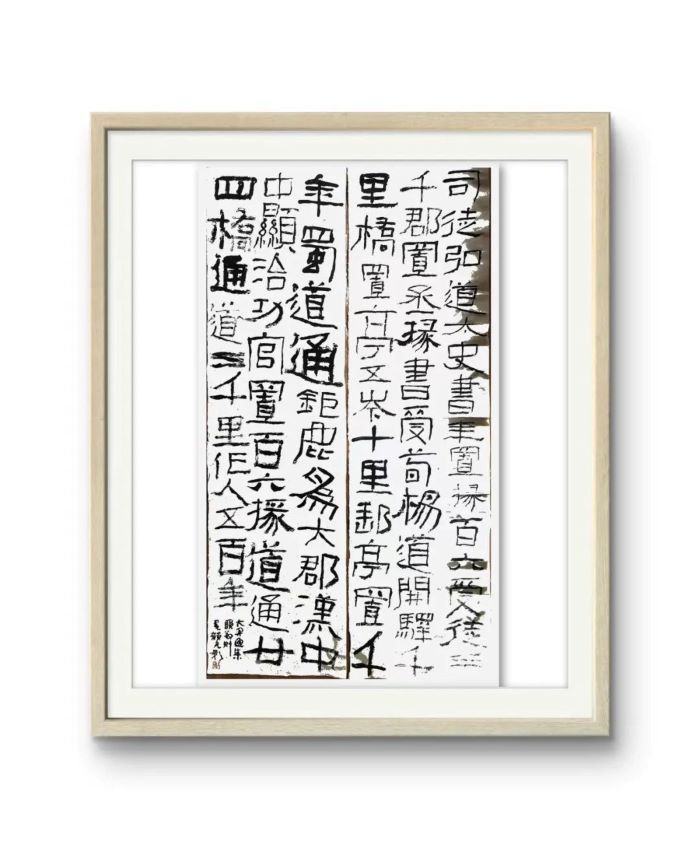 司徒弘道太史書年置掾百六受人徒
千郡置丞掾書受苟楊道開驛千
里橋置亭五岑十里郵亭置千
年蜀道通鉅鹿為大郡漢中
中顯治功官置百六掾道通廿
四橋通道二千里作人五百年